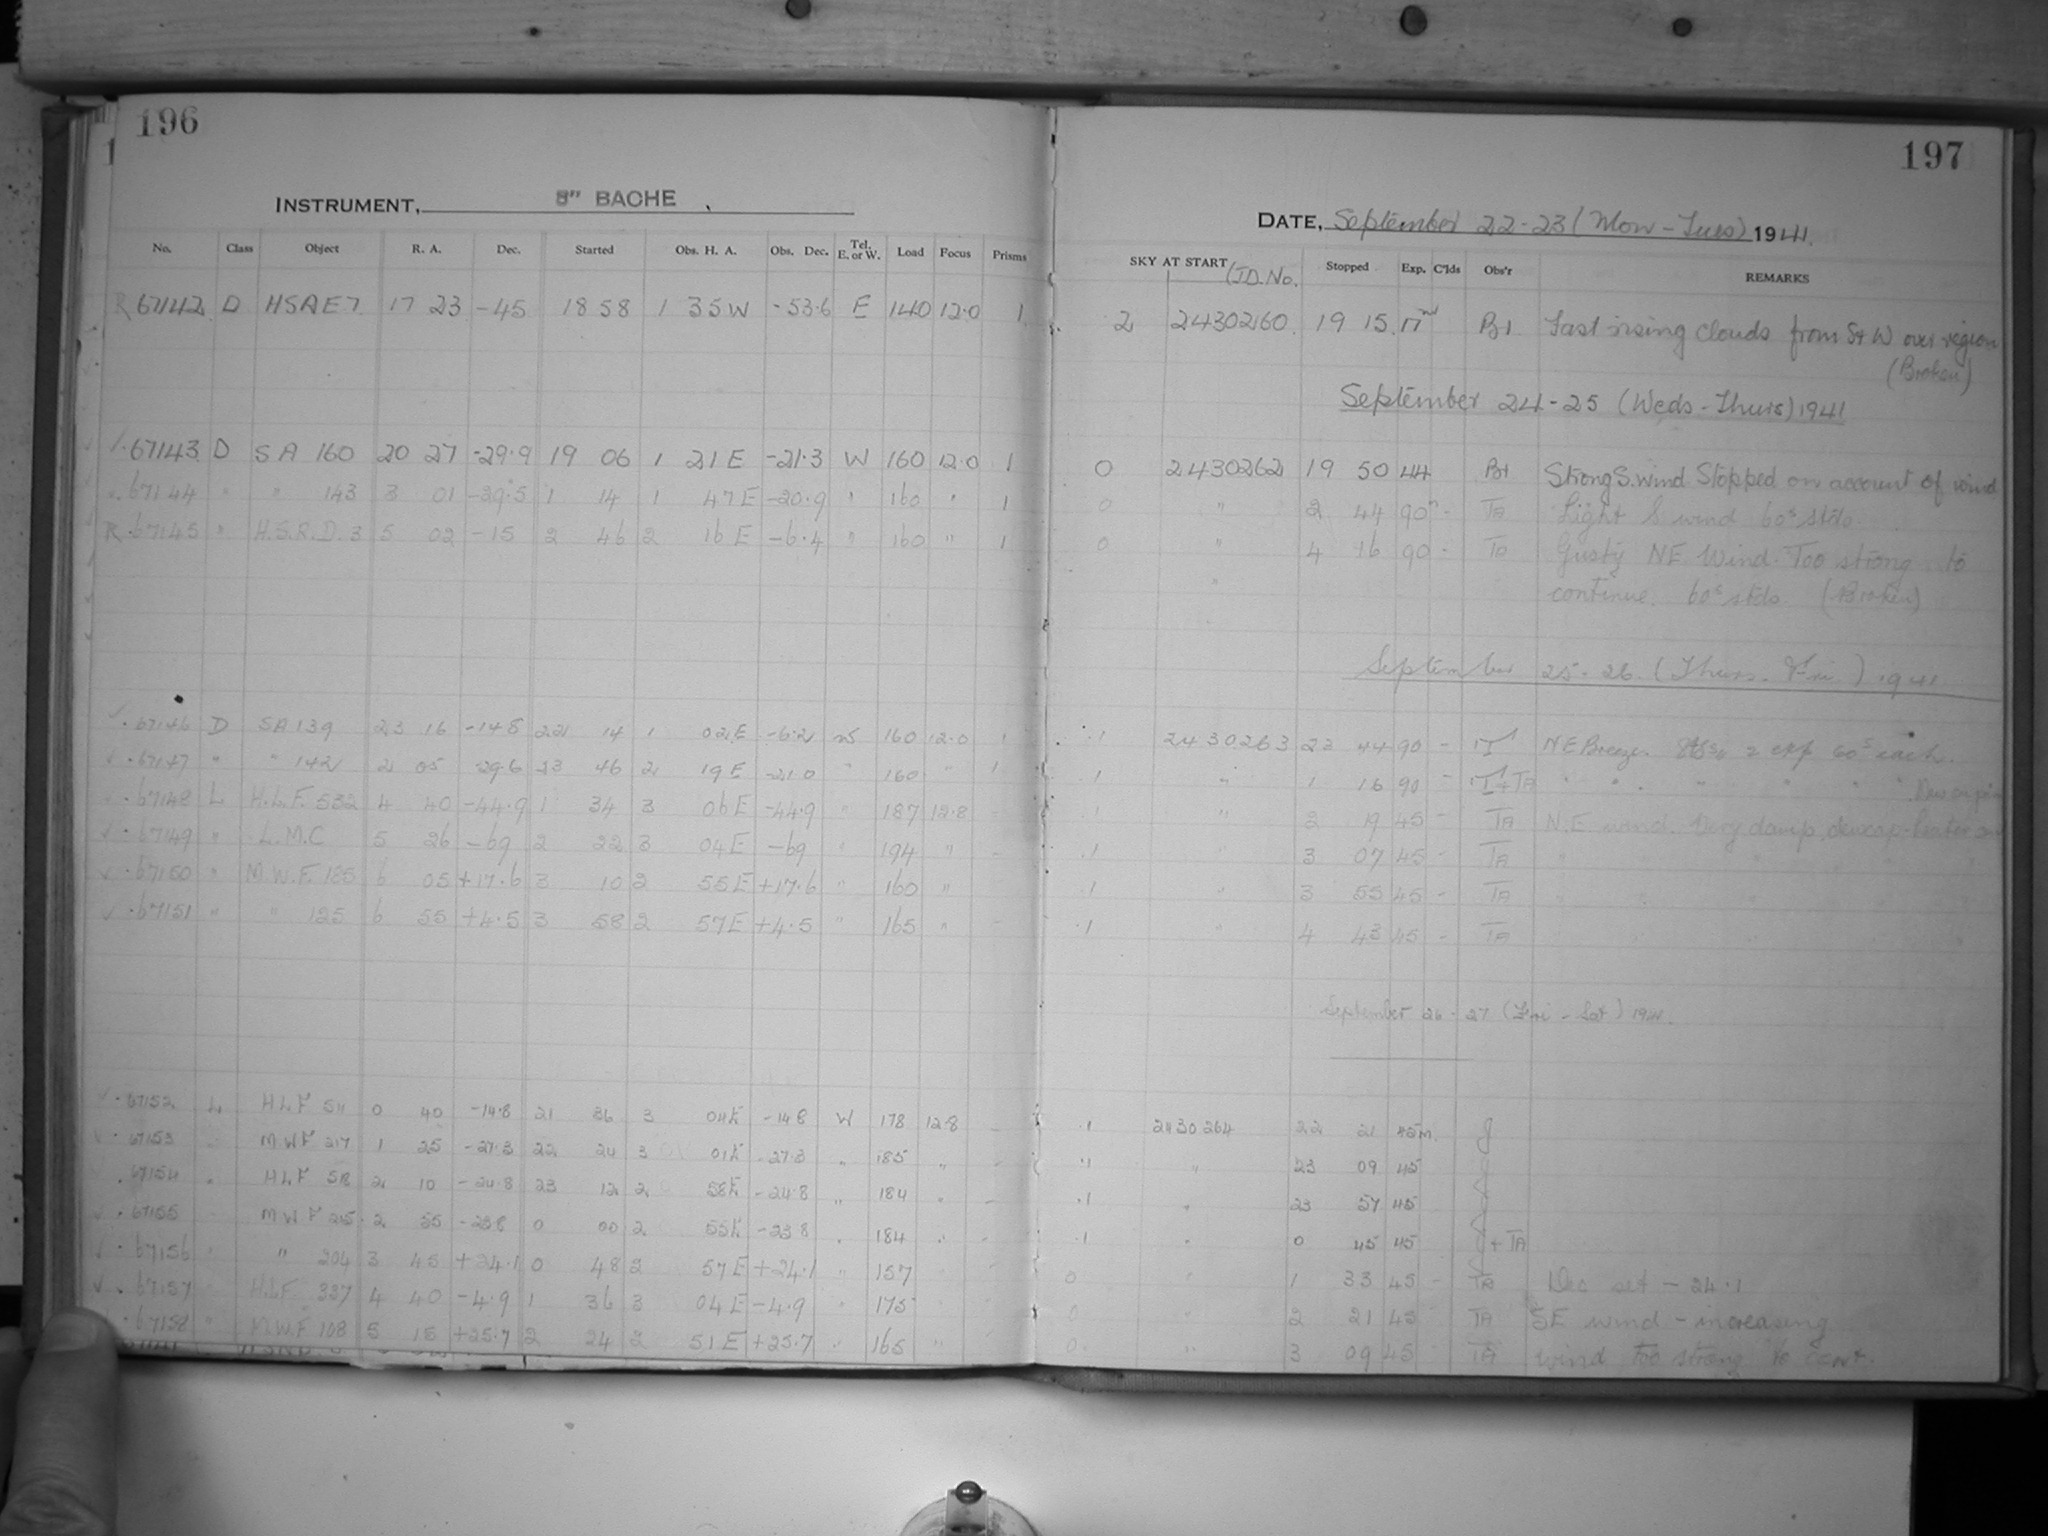 196
INSTRUMENT, 8" BACHE
No. Class Object R. A. Dec. Started Obs. H. A. Obs. Dec. Tel. E. or W. Load Focus Prisms
R 67142 D HSAE7 17 23 -45 18 58 1 35W -53.6 E 140 12.0 1
67143 D SA 160 20 27 -29.9 19 06 1 21E -21.3 W 160 12.0 1
67144 " " 143 3 01 -29.5 1 14 1 47E -20.9 " 160 " 1
R 67145 " H.S.R.D. 3 5 02 -15 2 46 2 16E -6.4 " 160 " 1
67146 D SA 139 23 16 -14.8 22 14 1 02E -6.2 W 160 12.0 1
67147 " " 142 2 05 -29.6 23 46 2 19E -21.0 " 160 " 1
67148 L H.L.F. 532 4 40 -44.9 1 34 3 06E -44.9 " 187 12.8 -
67149 " L.M.C 5 26 -69 2 22 3 04E -69 " 194 " -
67150 " M.W.F. 185 6 05 +17.6 3 10 2 55E +17.6 " 160 " -
67151 " " 125 6 55 +4.5 3 58 2 57E +4.5 " 165 " -
67152 L HLF 511 0 40 -14.8 21 36 3 04E -14.8 W 178 12.8 -
67153 MWF 217 1 25 -27.3 22 24 3 01E -27.3 " 185 " -
67154 " HLF 2 10 -24.8 23 12 2 58E -24.8 " 184 " -
67155 MWF 215 2 55 -23.8 0 00 2 55E -23.8 " 184 " -
67156 " " 204 3 45 +24.1 0 48 2 57E +24.1 " 157
67157 HLF 337 4 40 -4.9 1 36 3 04E -4.9 " 175
67158 " M.W.F 108 5 15 +25.7 2 24 2 51E +25.7 " 165 "
197
DATE, September 22-23 (Mon-Tues) 1941.
SKY AT START (JD. No. Stopped Exp. C'lds Obs'r REMARKS
2 2430260. 19 15 17m Bt Fast rising clouds from S & W over region
(Broken)
September 24-25 (Weds-Thurs) 1941
0 2430262 19 50 44 Bt Strong S. wind Stopped on account of wind
0 " 2 44 90m - TA Light S wind 60s stds.
0 " 4 16 90 - TA Gusty NE Wind. Too strong to
" continue. 60s stds (Broken)
September 25-26. (Thurs. Fri.) 1941
.1 2430263 23 44 90 - NE Breeze. 2 exp 60s each.
.1 " 1 16 90 - +TA " " " " " "
.1 " 2 19 45 - TA N.E wind. Very damp, dewcap-heater on
.1 " 3 07 45 - TA "
.1 " 3 55 45 - TA "
.1 " 4 43 45 - TA
September 26-27 (Fri-Sat) 1941.
.1 2430264 22 21 45m. J
.1 " 23 09 45
.1 " 23 57 45
.1 " 0 45 45 J+TA
0 " 1 33 45 - TA Dec set -24.1
0 " 2 21 45 TA SE wind - increasing
0 " 3 09 45 TA wind too strong to cont.